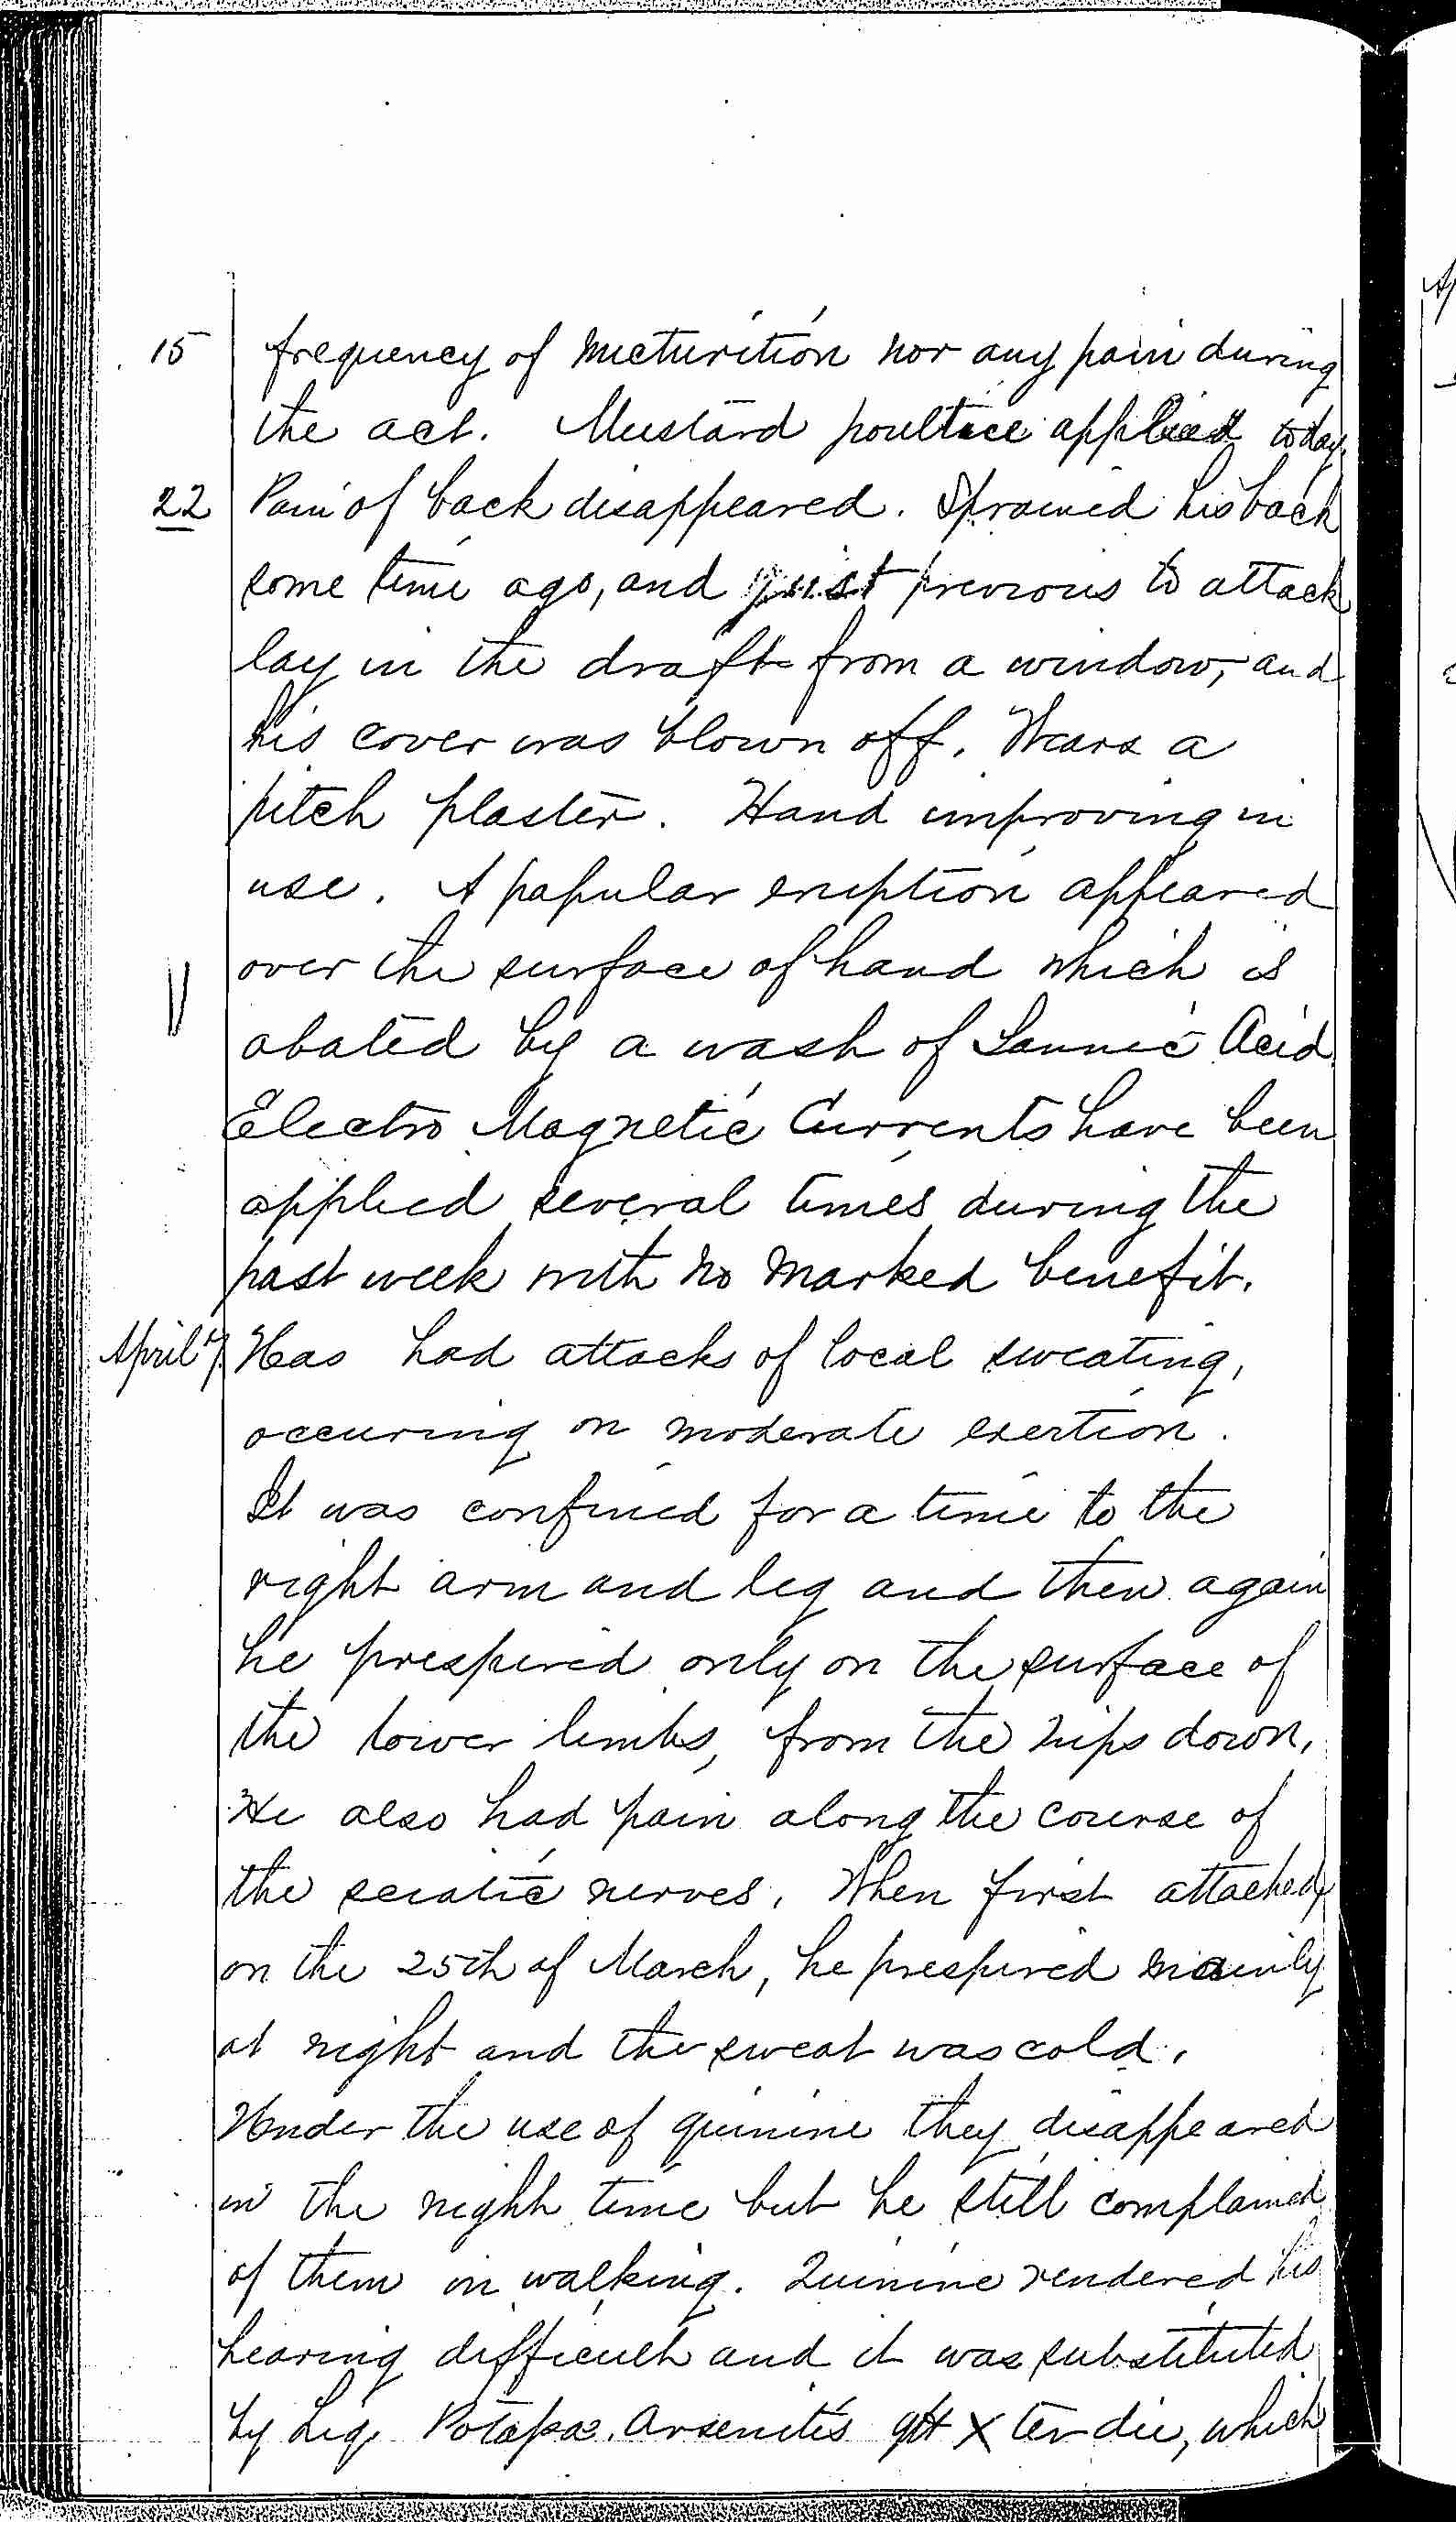 15 frequency of micturition nor any pain during
the act. Mustard poultice applied today.
22 Pain of back disappeared. Sprained his back
some time ago, and just previous to attack
lay in the draft from a window, and
his cover was blown off. Wears a
pitch plaster. Hand improving in
use. A papular eruption appeared
over the surface of hand which is
abated by a wash of Tannic Acid.
Electro Magnetic Currents have been
applied several times during the
past week with no marked benefit.
April 7. Has had attacks of local sweating,
occuring on moderate exertion.
It was confined for a time to the
right arm and leg and then again
he prespired only on the surface of
the lower limbs, from the hips down.
He also had pain along the course of
the sciatic nerves. When first attacked,
on the 25th of March, he prespired mainly
at night and the sweat was cold.
Under the use of quinine they disappeared
in the night time but he still complained
of them in walking. Quinine rendered his
hearing difficult and it was substituted
by Liq. Potassa. Arsenitis gtt X ter die, which